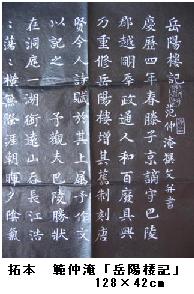 岳陽樓記 范仲淹撰文并書
慶曆四年春滕子京謫守巴陵
郡越明年政通人和百廢具興
乃重修岳陽樓增其舊制刻唐
賢今人詩賦於其上屬予作文
以記之 予觀夫巴陵勝狀
在洞庭一湖銜遠山吞長江浩
〻蕩〻橫無際涯朝暉夕陰氣
拓本 範仲淹「岳陽楼記」
128×42cm